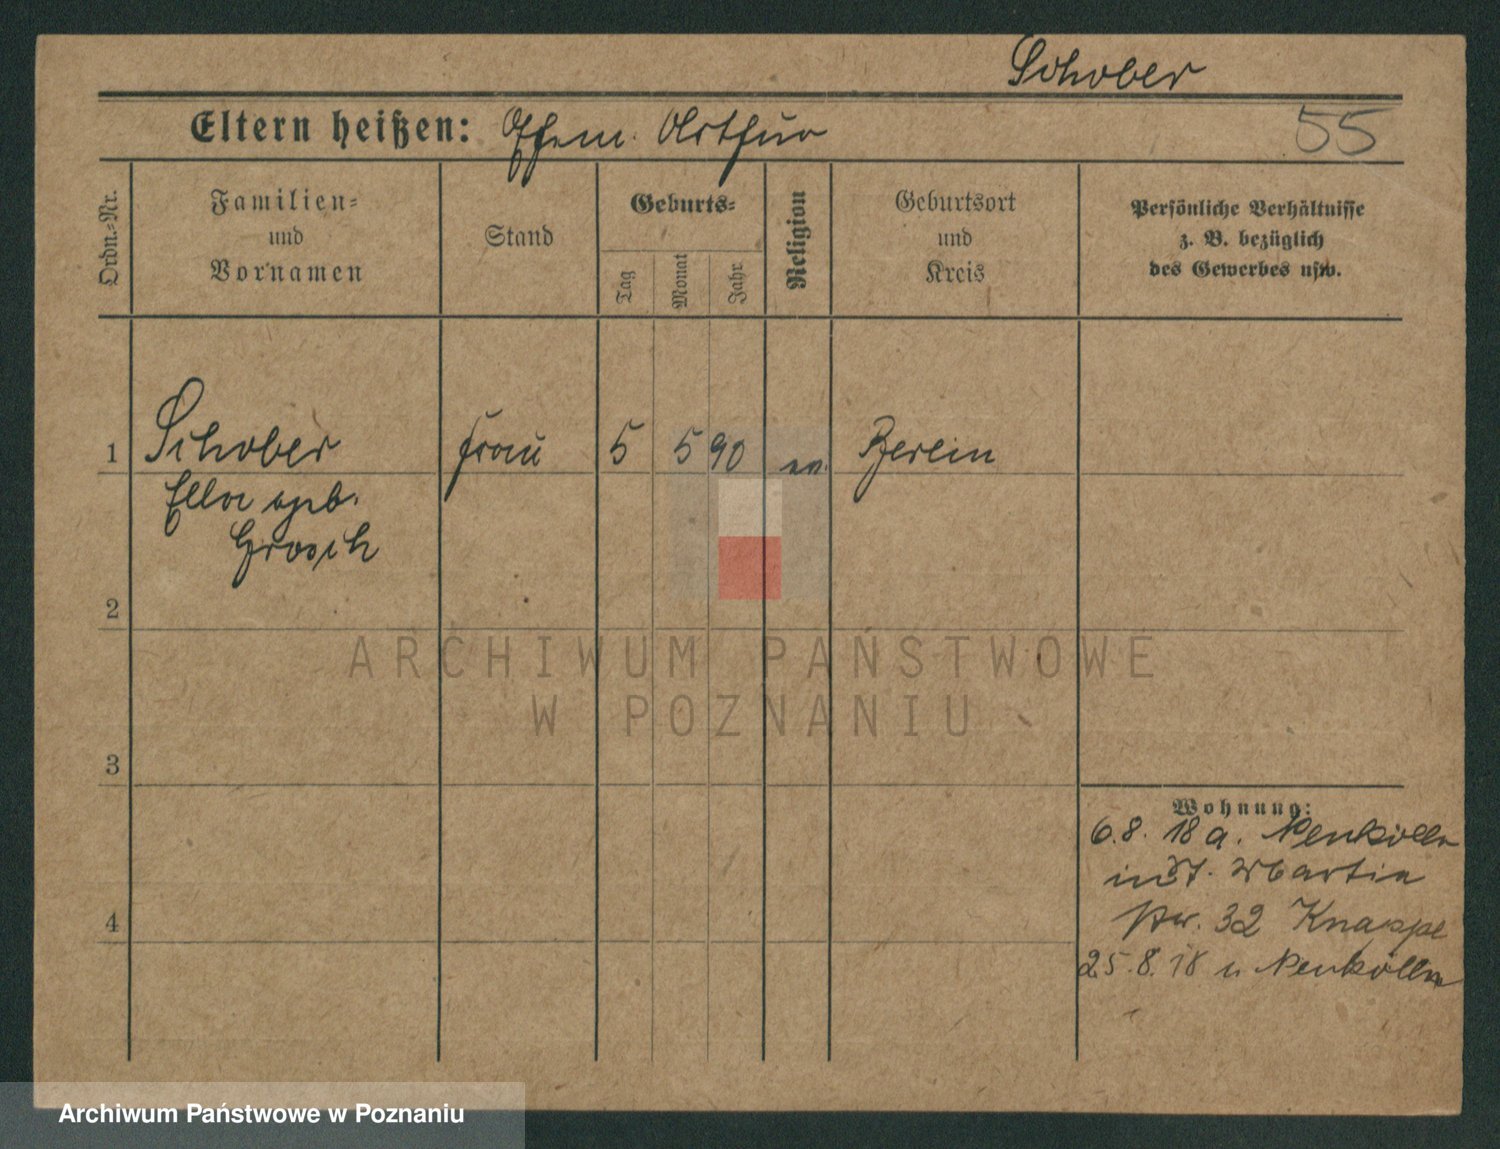 Schober
Eltern heißen: Ehem. Arthur 55
Ordn.-Nr.
Familien=
und
Vornamen
Stand
Geburts=
Tag
Monat
Jahr
Religion
Geburtsort
und
Kreis
Persönliche Verhältnisse
z. B. bezüglich
des Gewerbes usw.
1 Schober Frau 5 5 90 ev. Berlin
Ella geb.
Grosch
2
ARCHIWUM PAŃSTWOWE
W POZNANIU
3
Wohnung:
6.8. 18 a. Neukölln
in St. Martin
str. 32 Knappe
4
25.8.18 n. Neukölln
Archiwum Państwowe w Poznaniu